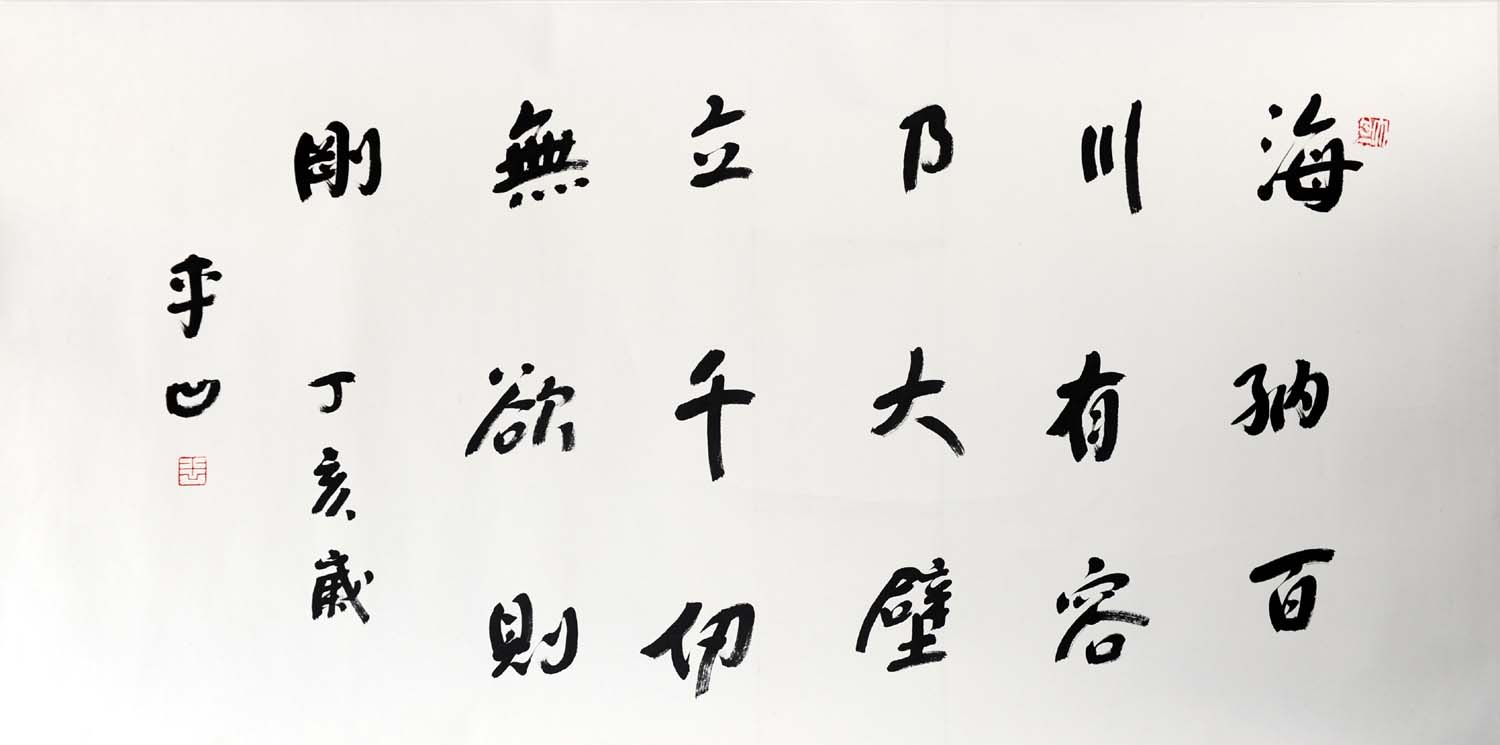 海納百
川有容
乃大壁
立千仞
無欲則
剛 丁亥歲
平凹